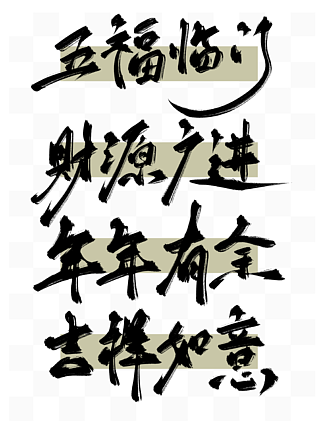 五福临门
財源广进
年年有余
吉祥如意